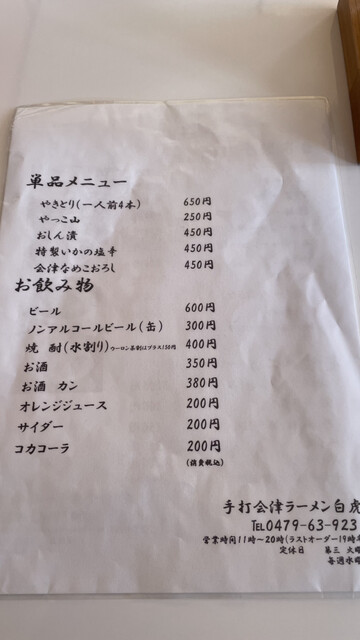 単品メニュー
やきとり(一人前4本) 650円
やっこ山 250円
おしん漬 450円
特製いかの塩辛 450円
会津なめこおろし 450円
お飲み物
ビール 600円
ノンアルコールビール(缶) 300円
焼酎(水割り)ウーロン茶割はプラス150円 400円
お酒 350円
お酒 カン 380円
オレンジジュース 200円
サイダー 200円
コカコーラ 200円
(消費税込)
手打会津ラーメン白虎
TEL0479-63-923
営業時間11時~20時(ラストオーダー19時
定休日 第三 火曜
毎週水曜